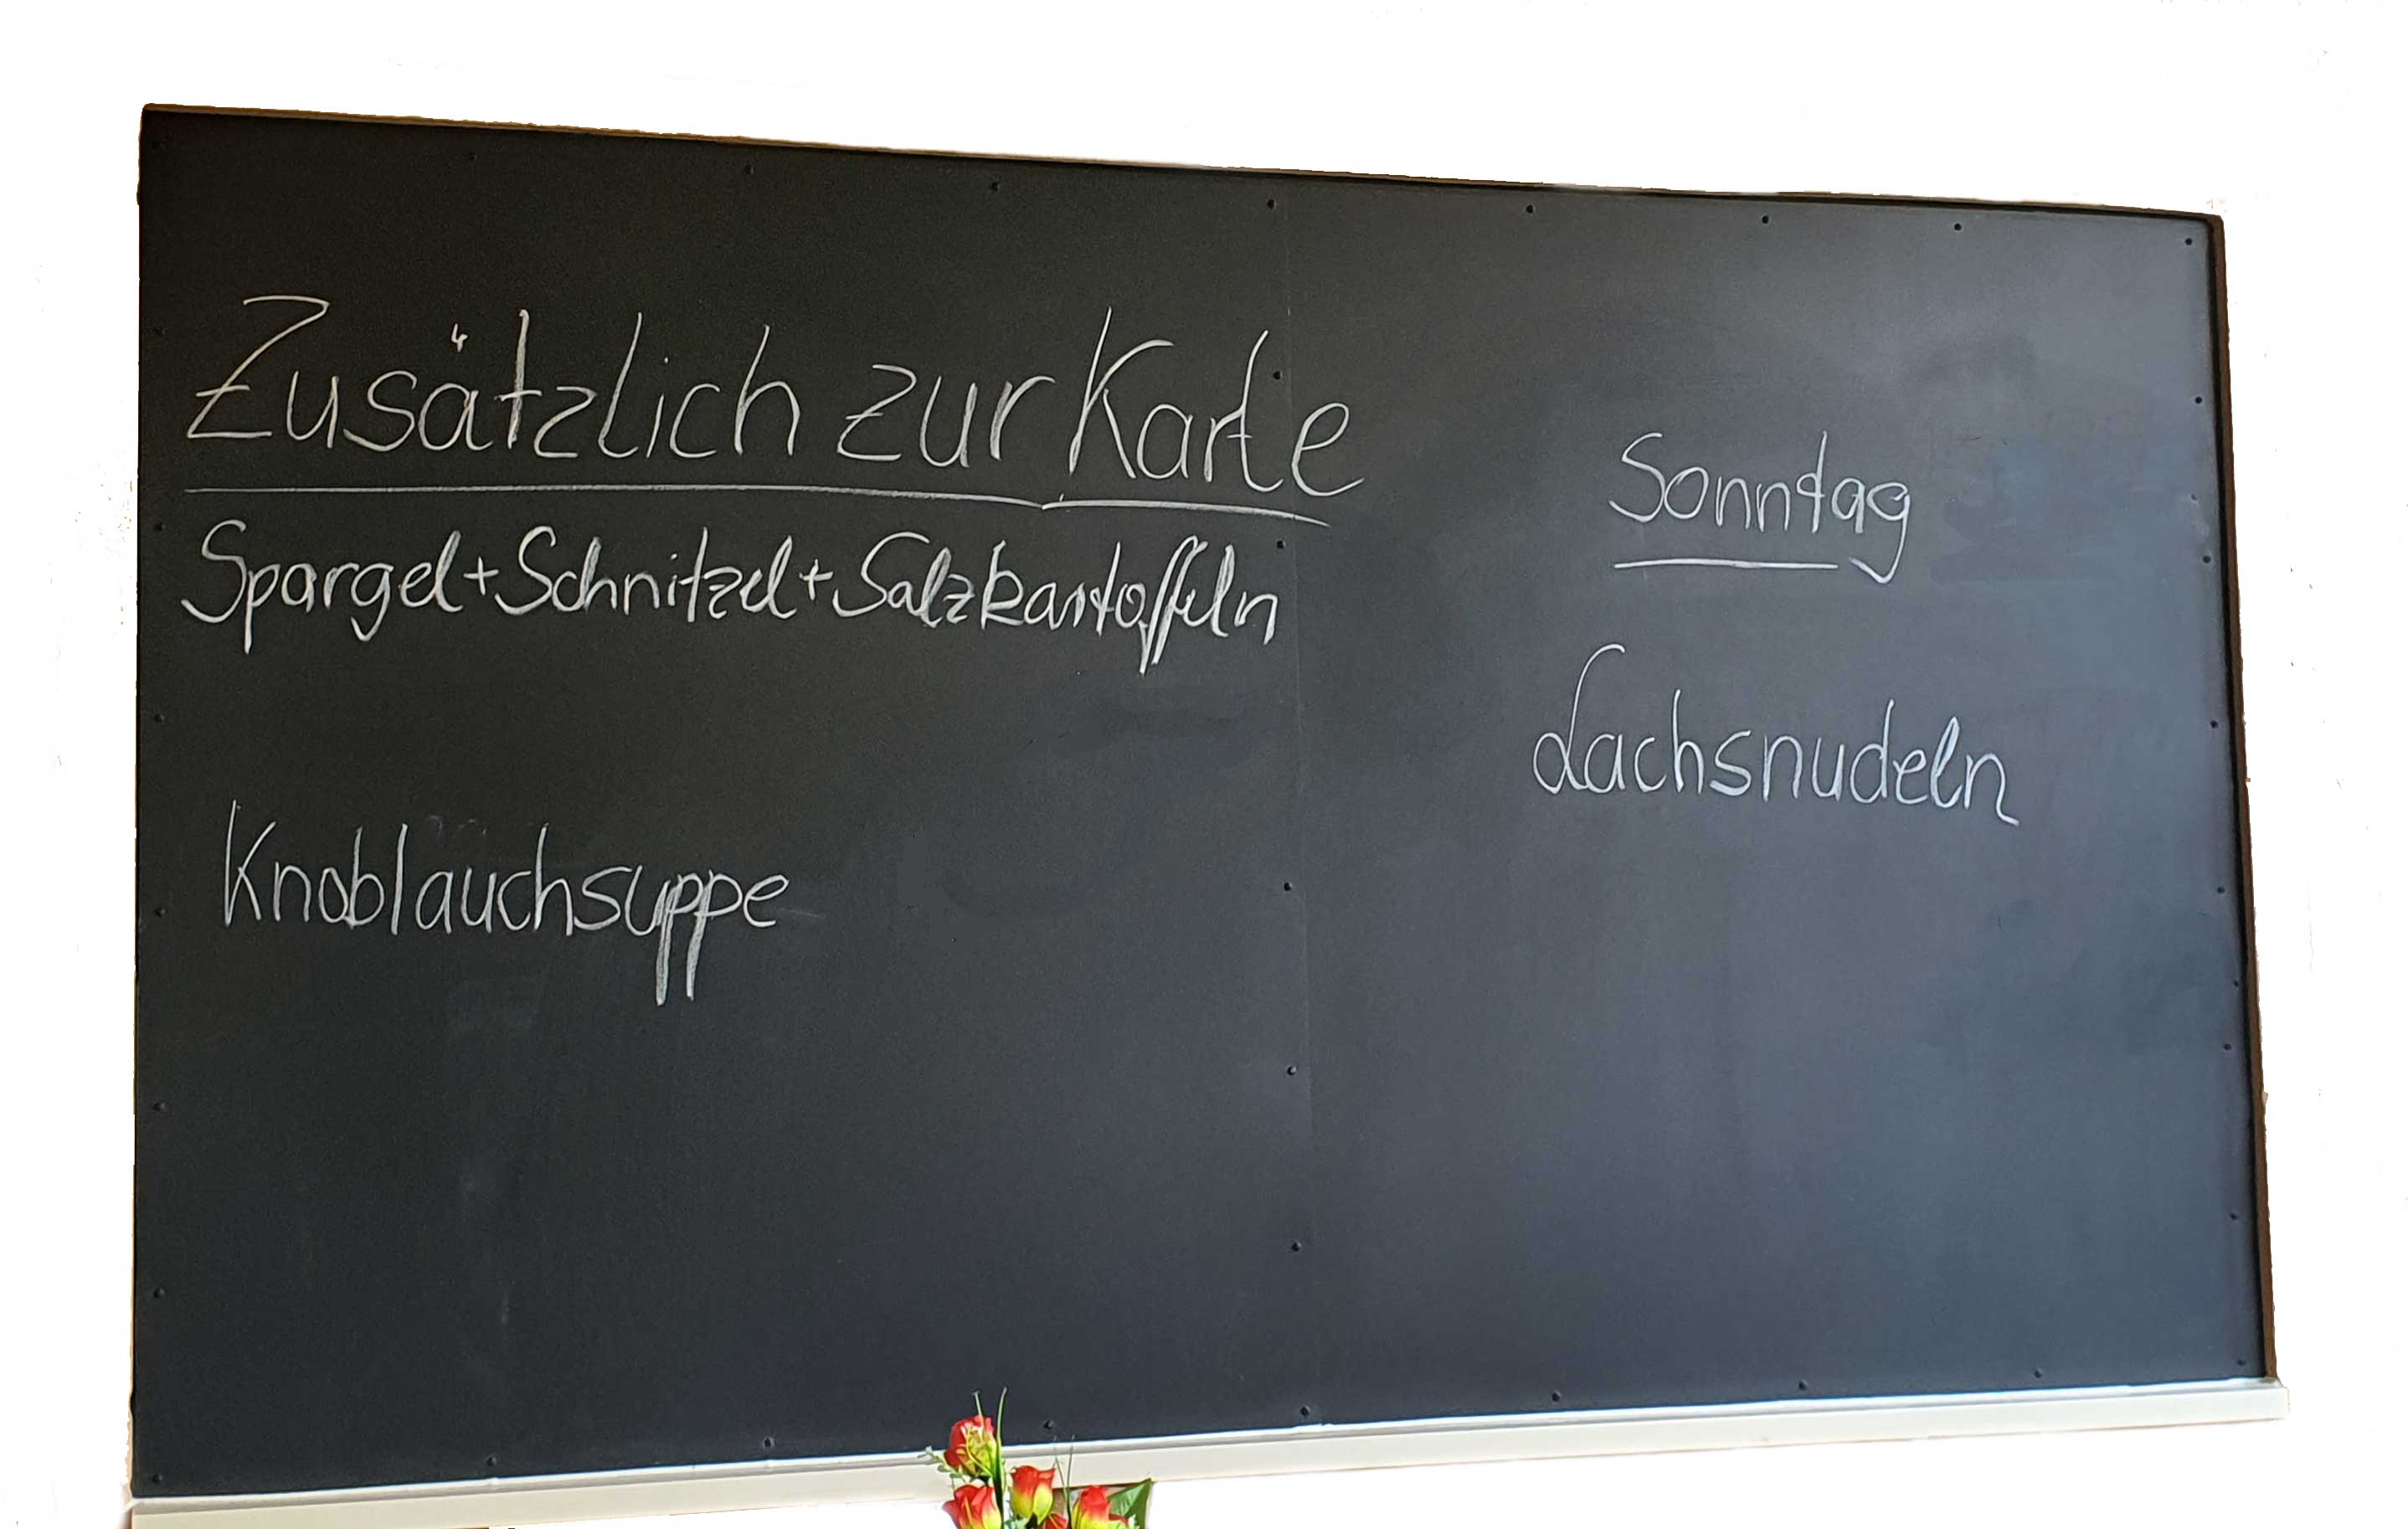 Zusätzlich zur Karte
Spargel+Schnitzel+Salzkartoffeln
Knoblauchsuppe
Sonntag
Lachsnudeln